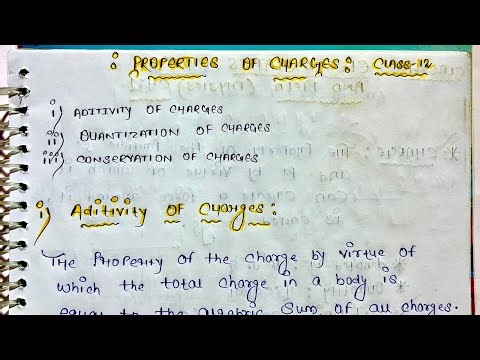 : PROPERTIES OF CHARGES : CLASS-12
i) ADITIVITY OF CHARGES
ii) QUANTIZATION OF CHARGES
iii) CONSERVATION OF CHARGES
i) Aditivity OF Charges :
The Property of the charge by virtue of
which the total charge in a body is
equal to the algebric sum of all charges.